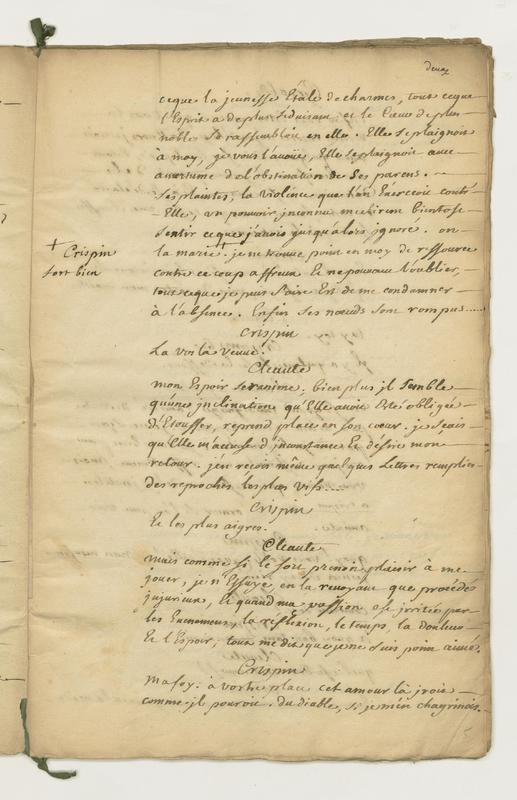 deux
ce que la jeunesse Etale de charmes, tout ce que
l'Esprit a de plus séduisant et le Cœur de plus
noble se rassembloit en elle. Elle se plaignoit
à moy, je vous l'avoüe, Elle se plaignoit avec
amertume de l'obstination de Ses parens.
ses plaintes, la violence que l'on Exercoit contr'
Elle, un pouvoir inconnu me firent bientost
sentir ce que j'avois jusqu'alors ignoré. on
la marie + je ne trouve point en moy de ressource
+ Crispin
fort bien
contre ce coup affreux Et ne pouvant l'oublier,
tout ce que je puis faire Est de me condamner
à l'absence. Enfin ses nœuds sont rompus.....
Crispin
La voilà veuve.
Cleante
mon Espoir se ranime; bien plus jl semble
qu'une jnclination qu'Elle avoit Esté obligée
d'Etouffer, reprend place en son cœur. je scais
qu'Elle m'accuse d'jnconstance Et désire mon
retour. j'en reçois même quelques Lettres remplies
des reproches les plus vifs....
Crispin
Et les plus aigres.
Cleante
mais comme si le sort prenoit plaisir à me
jouer, je n'Essuye en la revoyant que procédés
jnjurieux, Et quand ma passion est jrritée par
les Evenemens, la réflexion, le temps, la douleur
Et l'Espoir, tout me dit que je ne suis point aimé.
Crispin
Ma foy. à votre place cet amour là jroit
comme jl pouroit. du diable, si je m'en chagrinois.
5